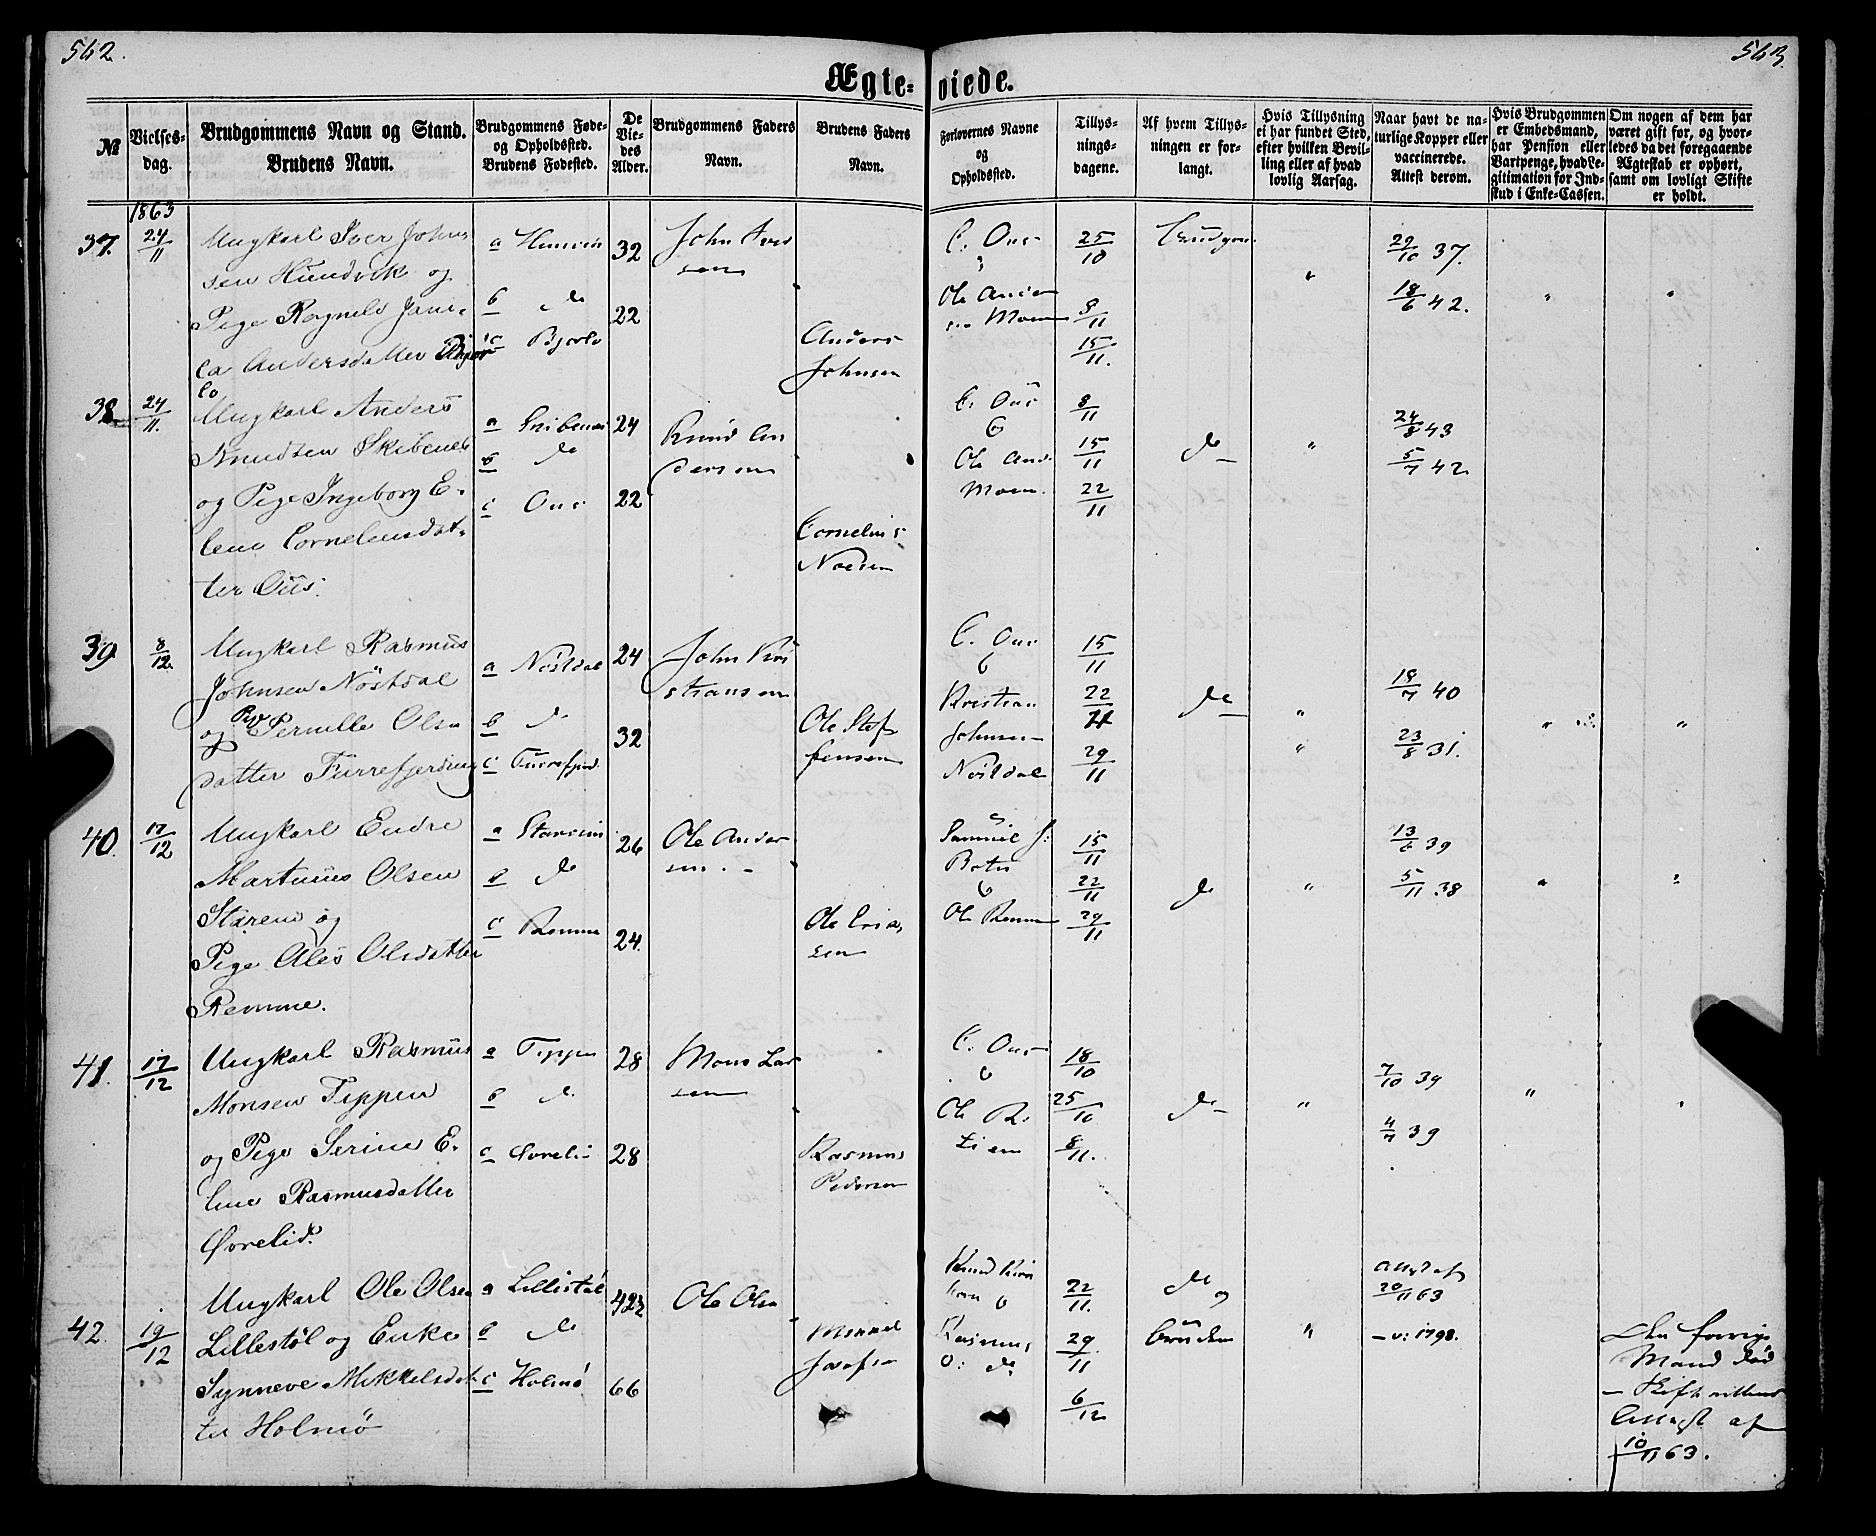 562.
563.
Ægteviede.
№
Vielsesdag.
Brudgommens Navn og Stand.
Brudens Navn.
Brudgommens Føde-
og Opholdssted.
Brudens Fødested.
De
Vie-
des
Alder.
Brudgommens Faders
Navn.
Brudens Faders
Navn.
Forlovernes Navne
og
Opholdssted.
Tillys-
nings-
dagene.
Af hvem Tillys-
ningen er for-
langt.
Hvis Tillysning
ei har fundet Sted,
efter hvilken Bevil-
ling eller af hvad
lovlig Aarsag.
Naar havt de na-
turlige Kopper eller
vaccinerede.
Attest derom.
Hvis Brudgommen
er Embedsmand,
har Pension eller
Vartpenge, hvad Le-
gitimation for Ind-
skud i Enke-Cassen.
Om nogen af dem har
været gift for, og hvor-
ledes da det foregaaende
Ægteskab er ophørt,
samt om lovligt Skifte
er holdt.
1863
37. 24/11
Ungkarl Iver Johan-
sen Hundvik og
Pige Ragnele Jani-
ca Andersdatter
a
b do
c Bjorlo
32
22
John Iver
sen
Anders
Johnsen
C. Ous
Ole Ander
sen Moen
25/10
8/11
15/11.
Brudgom.
"
29/10 37.
18/6 42.
"
"
38 24/11.
Ungkarl Anders
Knudsen Skibenes
og Pige Ingeborg E-
lene Corneliusdat-
ter Ous.
a Skibenes
b do
c Ous
24
22
Knud An
dersen
Cornelius
C. Ous
Ole And.
Moen.
8/11
15/11
22/11
do
"
24/8 43
5/7 42
39 8/12.
Ungkarl Rasmus
Johnsen Nöstdal
og Pernille Ols
datter Turrefjerding
a Nöstdal
b do
c Turrefjerd.
24
32
John Kri
stiansen
Ole Stef
fensen
C. Ous
Kristian
Johnsen
Nöstdal
15/11
22/11
29/11
do
"
"
19/7 40
23/8 31.
"
"
40. 17/12
Ungkarl Endre
Martinus Olsen
Stareim og
Pige Ales Olsdatter
Remme.
a Stareim
b do
c Remme
26
24.
Ole Ander
sen.
Ole Erik
sen
Samuel J.
Ole Remme
15/11
22/11
29/11
do
"
13/6 39
5/11 38
"
"
41. 17/12
Ungkarl Rasmus
Monsen Tippen
og Pige Serine E-
line Rasmusdatter
Övrelid.
a Tippen
b do
c Övrelid
28
28
Mons Lar
sen
Rasmus
Pedersen
C. Ous
Ole R.
18/10
25/10
8/11.
do
"
7/10 39
4/7 39
"
42. 19/12
Ungkarl Ole Olsen
Lillestöl og Enke
Synneve Mikkelsdat-
ter Holmö
a Lillestöl
b do
c Holmö
42½
66
Ole Olsen
Josefsen
Knud
Rasmus
22/11.
29/11
6/12
do
og
Bruden
"
Attest af
20/11 63
1798.
Mand död
Attest af
10/11 63.